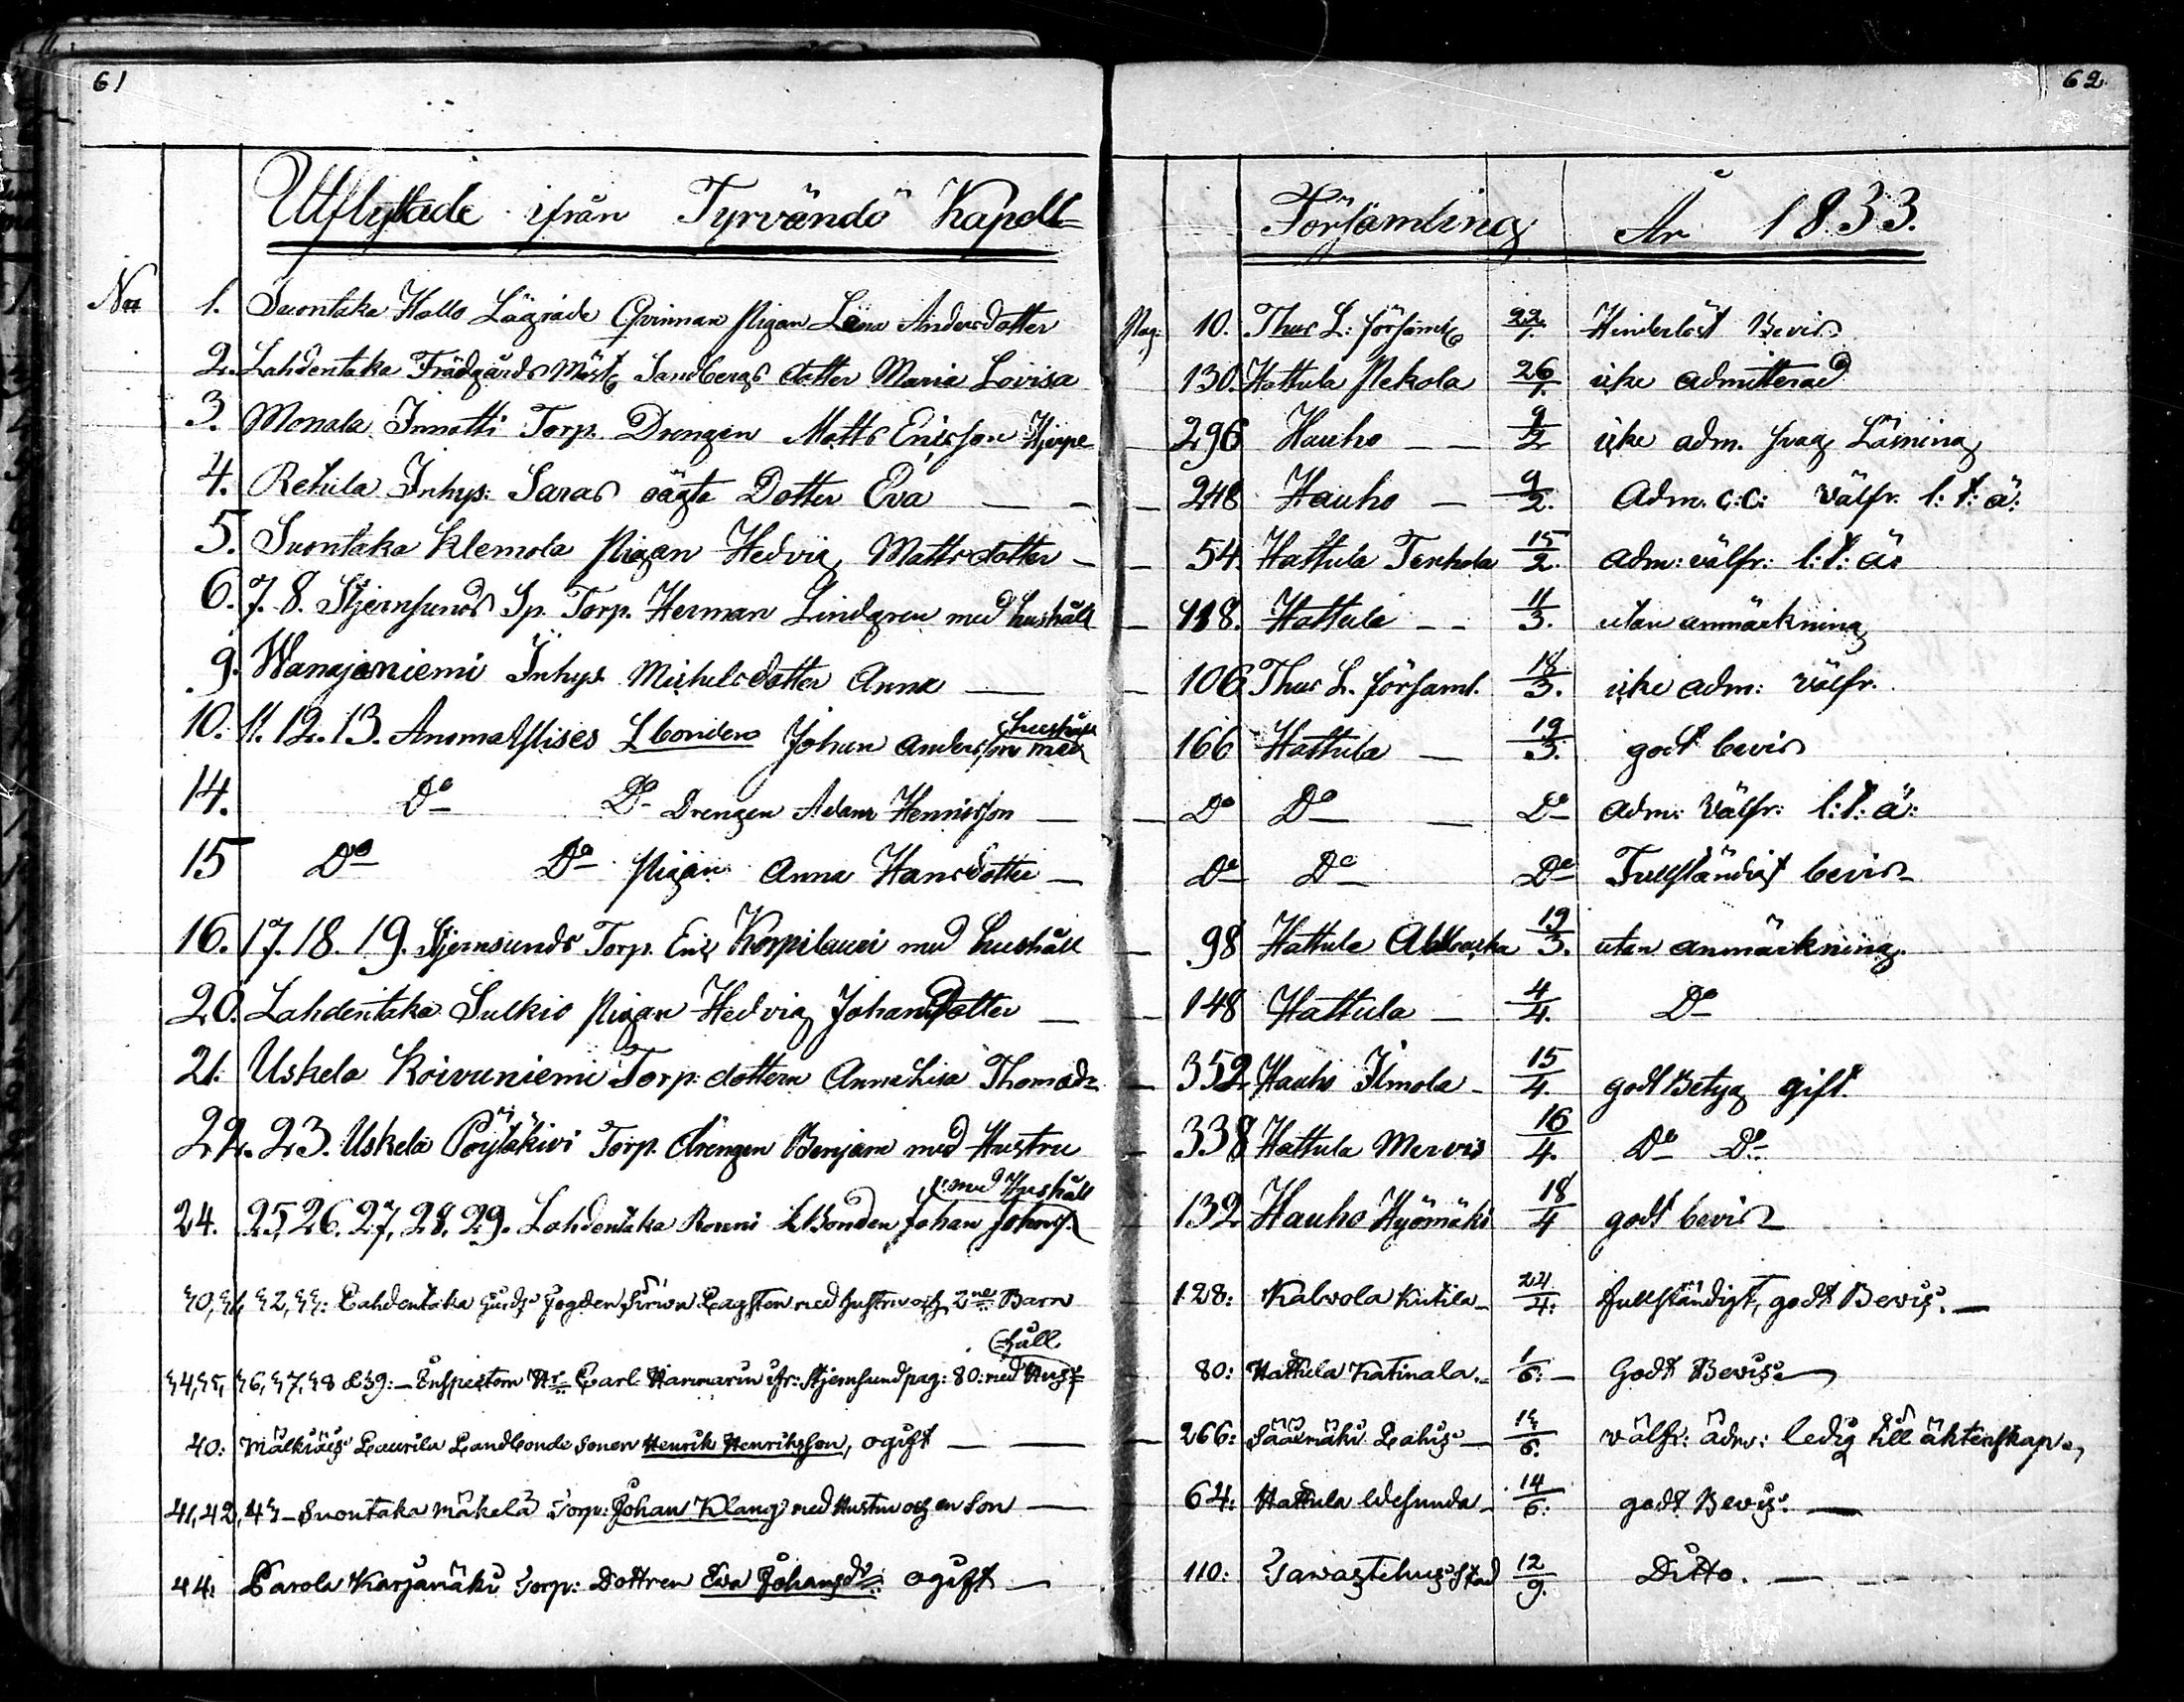 61
62
Utflyttade ifrån Tyrvändö Kapell
Församling År 1833.
No 1. Suontaka Hallo Lägrade Qvinnan Pigan Lena Andersdotter Pag: 10. Thus L: församl 22/1. Hinderlöst Bevis
2. Lahdentaka Trädgårds Mäst Sandbergs dotter Maria Lovisa 130. Hattula Pekola 26/1. icke admitterad
3. Monala Torp. Drengen Matts Ericsson Hjerpe 296 Hauho 9/2 icke adm. svag Läsning
4. Retula Inhys: Saras oägta Dotter Eva 248 Hauho 9/2. Adm. c:c: välfr. l: t: ä:
5. Suontaka Klemola Pigan Hedvig Mattsdotter 54 Hattula Tenhola 15/2. adm: välfr: l: t: ä:
6. 7. 8. Stjernsunds Sp. Torp. Herman Lindgren med hushåll 118. Hattula 11/3. utan anmärkning
9. Wanajaniemi Inhys Michelsdotter Anna 106 Thus L. församl. 18/3. icke adm: välfr.
10. 11. 12. 13. Anomaa Lbonden Johan Andersson med hushåll 166 Hattula 19/3. godt bevis
14. Do Do Drengen Adam Henricsson Do Do Do adm: välfr: l: t: ä:
15 Do Do Pigan Anna Hansdotter Do Do Do Fullständigt bevis
16. 17. 18. 19. Stjernsunds Torp. Eric Korpilauri med hushåll 98 Hattula 19/3. utan anmärkning.
20. Lahdentaka Sulkio Pigan Hedvig Johansdotter 148 Hattula 4/4. Do
21. Uskela Koivuniemi Torp: dottern Anna Lisa Thomadr 352 Hauho Ilmola 15/4. godt Betyg gift.
22. 23. Uskela Pöytäkivi Torp. drengen Benjam med Hustru 338 Hattula Mervis 16/4. Do Do
24. 25, 26. 27, 28. 29. Lahdentaka Ronni LBonden Johan Johanss. med Hushåll 132 Hauho Hyömäki 18/4 godt bevis
30, 31, 32, 33: Lahdentaka Gårds Fogden Lagsten med hustru och 2ne Barn 128: Kalvola Kutila 24/4: fullständigt, godt Bevis.
34, 35, 36, 37, 38 & 39: Inspectorn Hr Carl Hammarin ifr: Stjernsund pag: 80: med Hushåll 80: Hattula Katinala. 1/6: Godt Bevis
40: Mälkiäis Laurila Landbonde Sonen Henrik Henriksson, ogift 266: Sääxmäki Lahis 13/6. välfr: adm: ledig till äktenskap
41, 42, 43 Suontaka Mäkelä Torp: Johan Klang med Hustru och en Son 64: Hattula Idesunda 14/6. godt Bevis.
44: Parola Karjamäki Torp: Dottren Eva Johansdr: ogift 110: Tawastehus Stad 12/9. Ditto.